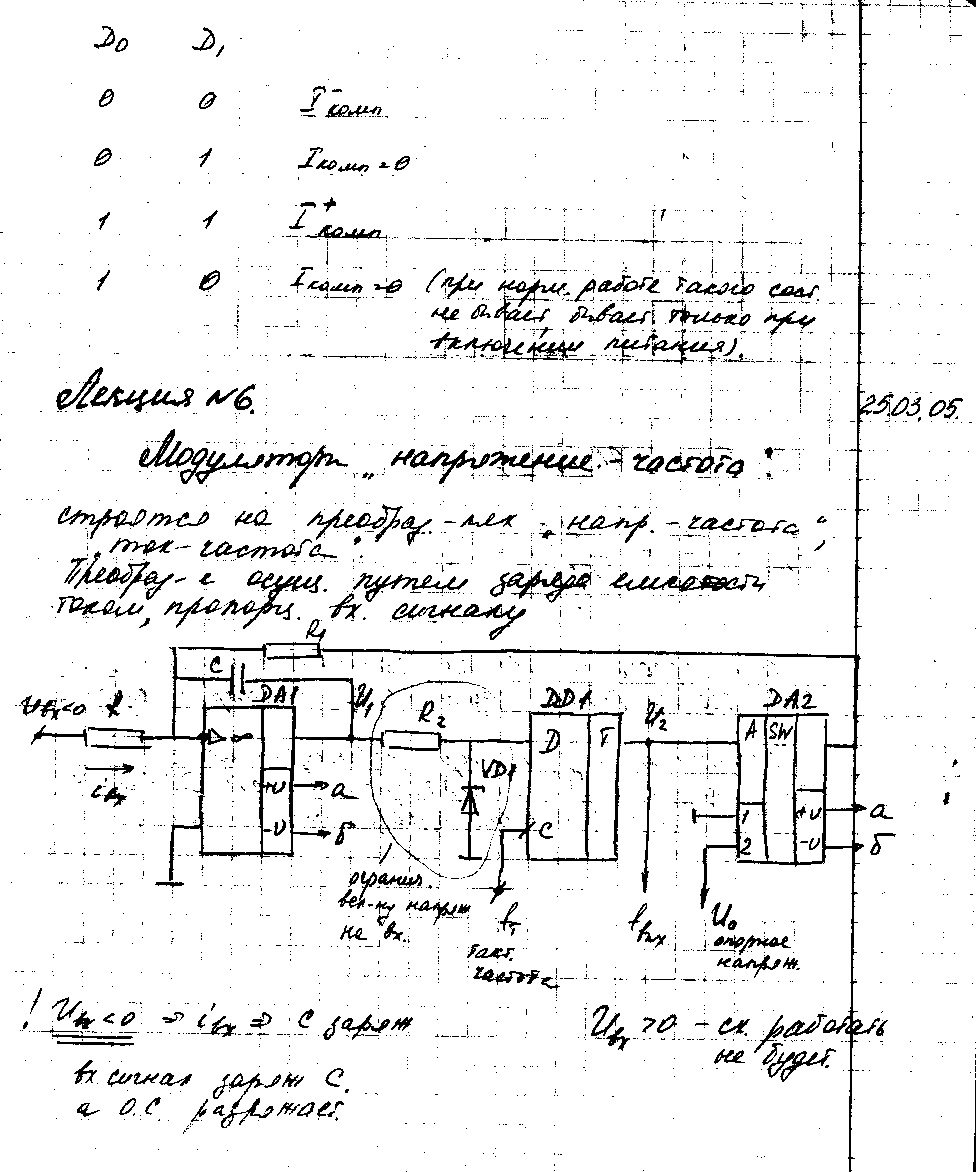 D₀ D₁
0 0 I⁻комп
0 1 Iкомп=0
1 1 I⁺комп
1 0 Iкомп=0 (при норм. работе такого сост.
не бывает, бывает только при
включении питания).
Лекция №6. 25.03.05.
Модуляторы „напряжение-частота".
строятся на преобраз-лях „напр.-частота",
„ток-частота".
Преобраз-е осущ. путем заряда емкости
током, пропорц. вх. сигналу
R₁
C
DA1 U₁ R₂ DD1 U₂ DA2
Uвх<0 R
▷ ∞ D T A SW
VD1
iвх
+U а C 1 +U а
-U б 2 -U б
огранич.
вел-ну напряж
на вх.
fт
такт.
частота
fвых
U₀
опорное
напряж.
! Uвх<0 ⇒ iвх ⇒ C заряж
Uвх>0 – сх. работать
не будет.
вх сигнал заряж C.
а О.С. разряжает.